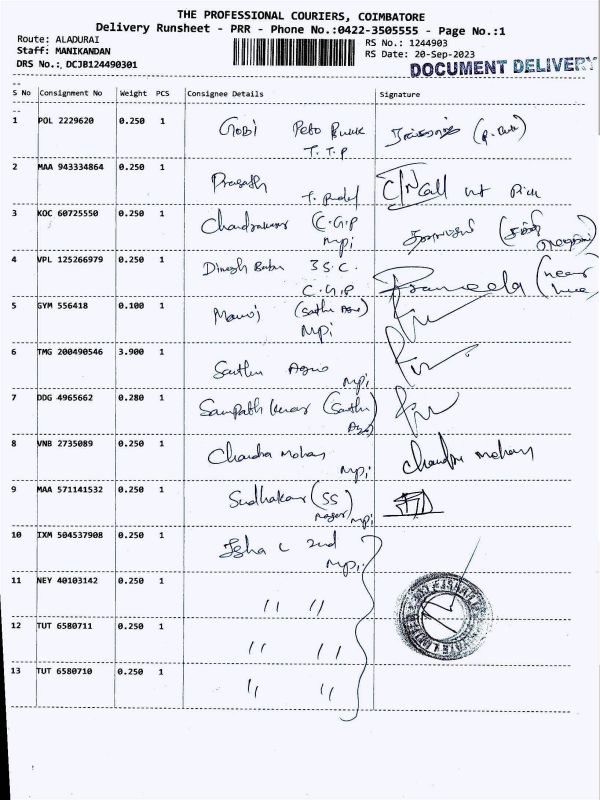 THE PROFESSIONAL COURIERS, COIMBATORE
Delivery Runsheet - PRR - Phone No.:0422-3505555 - Page No.:1
Route: ALADURAI
Staff: MANIKANDAN
DRS No.: DCJB124490301
RS No.: 1244903
RS Date: 20-Sep-2023
DOCUMENT DELIVERY
S No Consignment No Weight PCS Consignee Details Signature
1 POL 2229620 0.250 1 Gobi
T.T.P
2 MAA 943334864 0.250 1 Prasath Call
3 KOC 60725550 0.250 1 C.G.P
mpi
4 VPL 125266979 0.250 1 Dinesh Babu Prameela (near
C.G.P
5 GYM 556418 0.100 1 Manoj
MPi
6 TMG 200490546 3.900 1 Sathu Agro
mpi
7 DDG 4965662 0.280 1 Sampath Kumar (Sathu
Agro)
8 VNB 2735089 0.250 1 Chandra mohan chandra mohan
mpi
9 MAA 571141532 0.250 1 Sudhakar (SS
nagar) mpi
10 IXM 504537908 0.250 1 Isha
mpi
11 NEY 40103142 0.250 1 " "
12 TUT 6580711 0.250 1 " "
13 TUT 6580710 0.250 1 " "